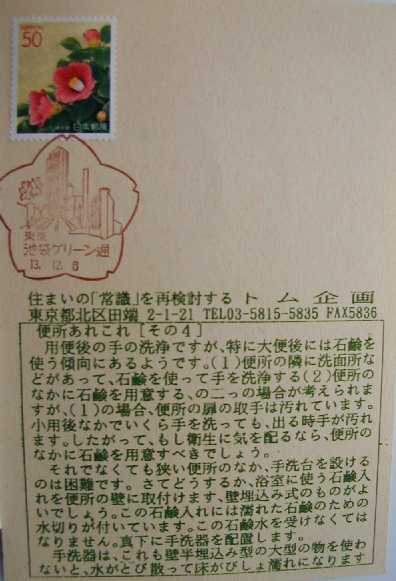 50
日本郵便
東京
池袋グリーン通
13.12.6
住まいの「常識」を再検討する トム企画
東京都北区田端 2-1-21 TEL03-5815-5835 FAX5836
便所あれこれ [その4]
用便後の手の洗浄ですが、特に大便後には石鹸を
使う傾向にあるようです。(1)便所の隣に洗面所な
どがあって、石鹸を使って手を洗浄する(2)便所の
なかに石鹸を用意する、の二つの場合が考えられま
すが、(1)の場合、便所の扉の取手は汚れています。
小用後なかでいくら手を洗っても、出る時手が汚れ
ます。したがって、もし衛生に気を配るなら、便所の
なかに石鹸を用意すべきでしょう。
それでなくても狭い便所のなか、手洗台を設ける
のは困難です。さてどうするか、浴室に使う石鹸入
れを便所の壁に取付けます、壁埋込み式のものがよ
いでしょう。この石鹸入れには濡れた石鹸のための
水切りが付いています。この石鹸水を受けなくては
なりません。真下に手洗器を配置します。
手洗器は、これも壁半埋込み型の大型の物を使わ
ないと、水がとび散って床がびしょ濡れになります